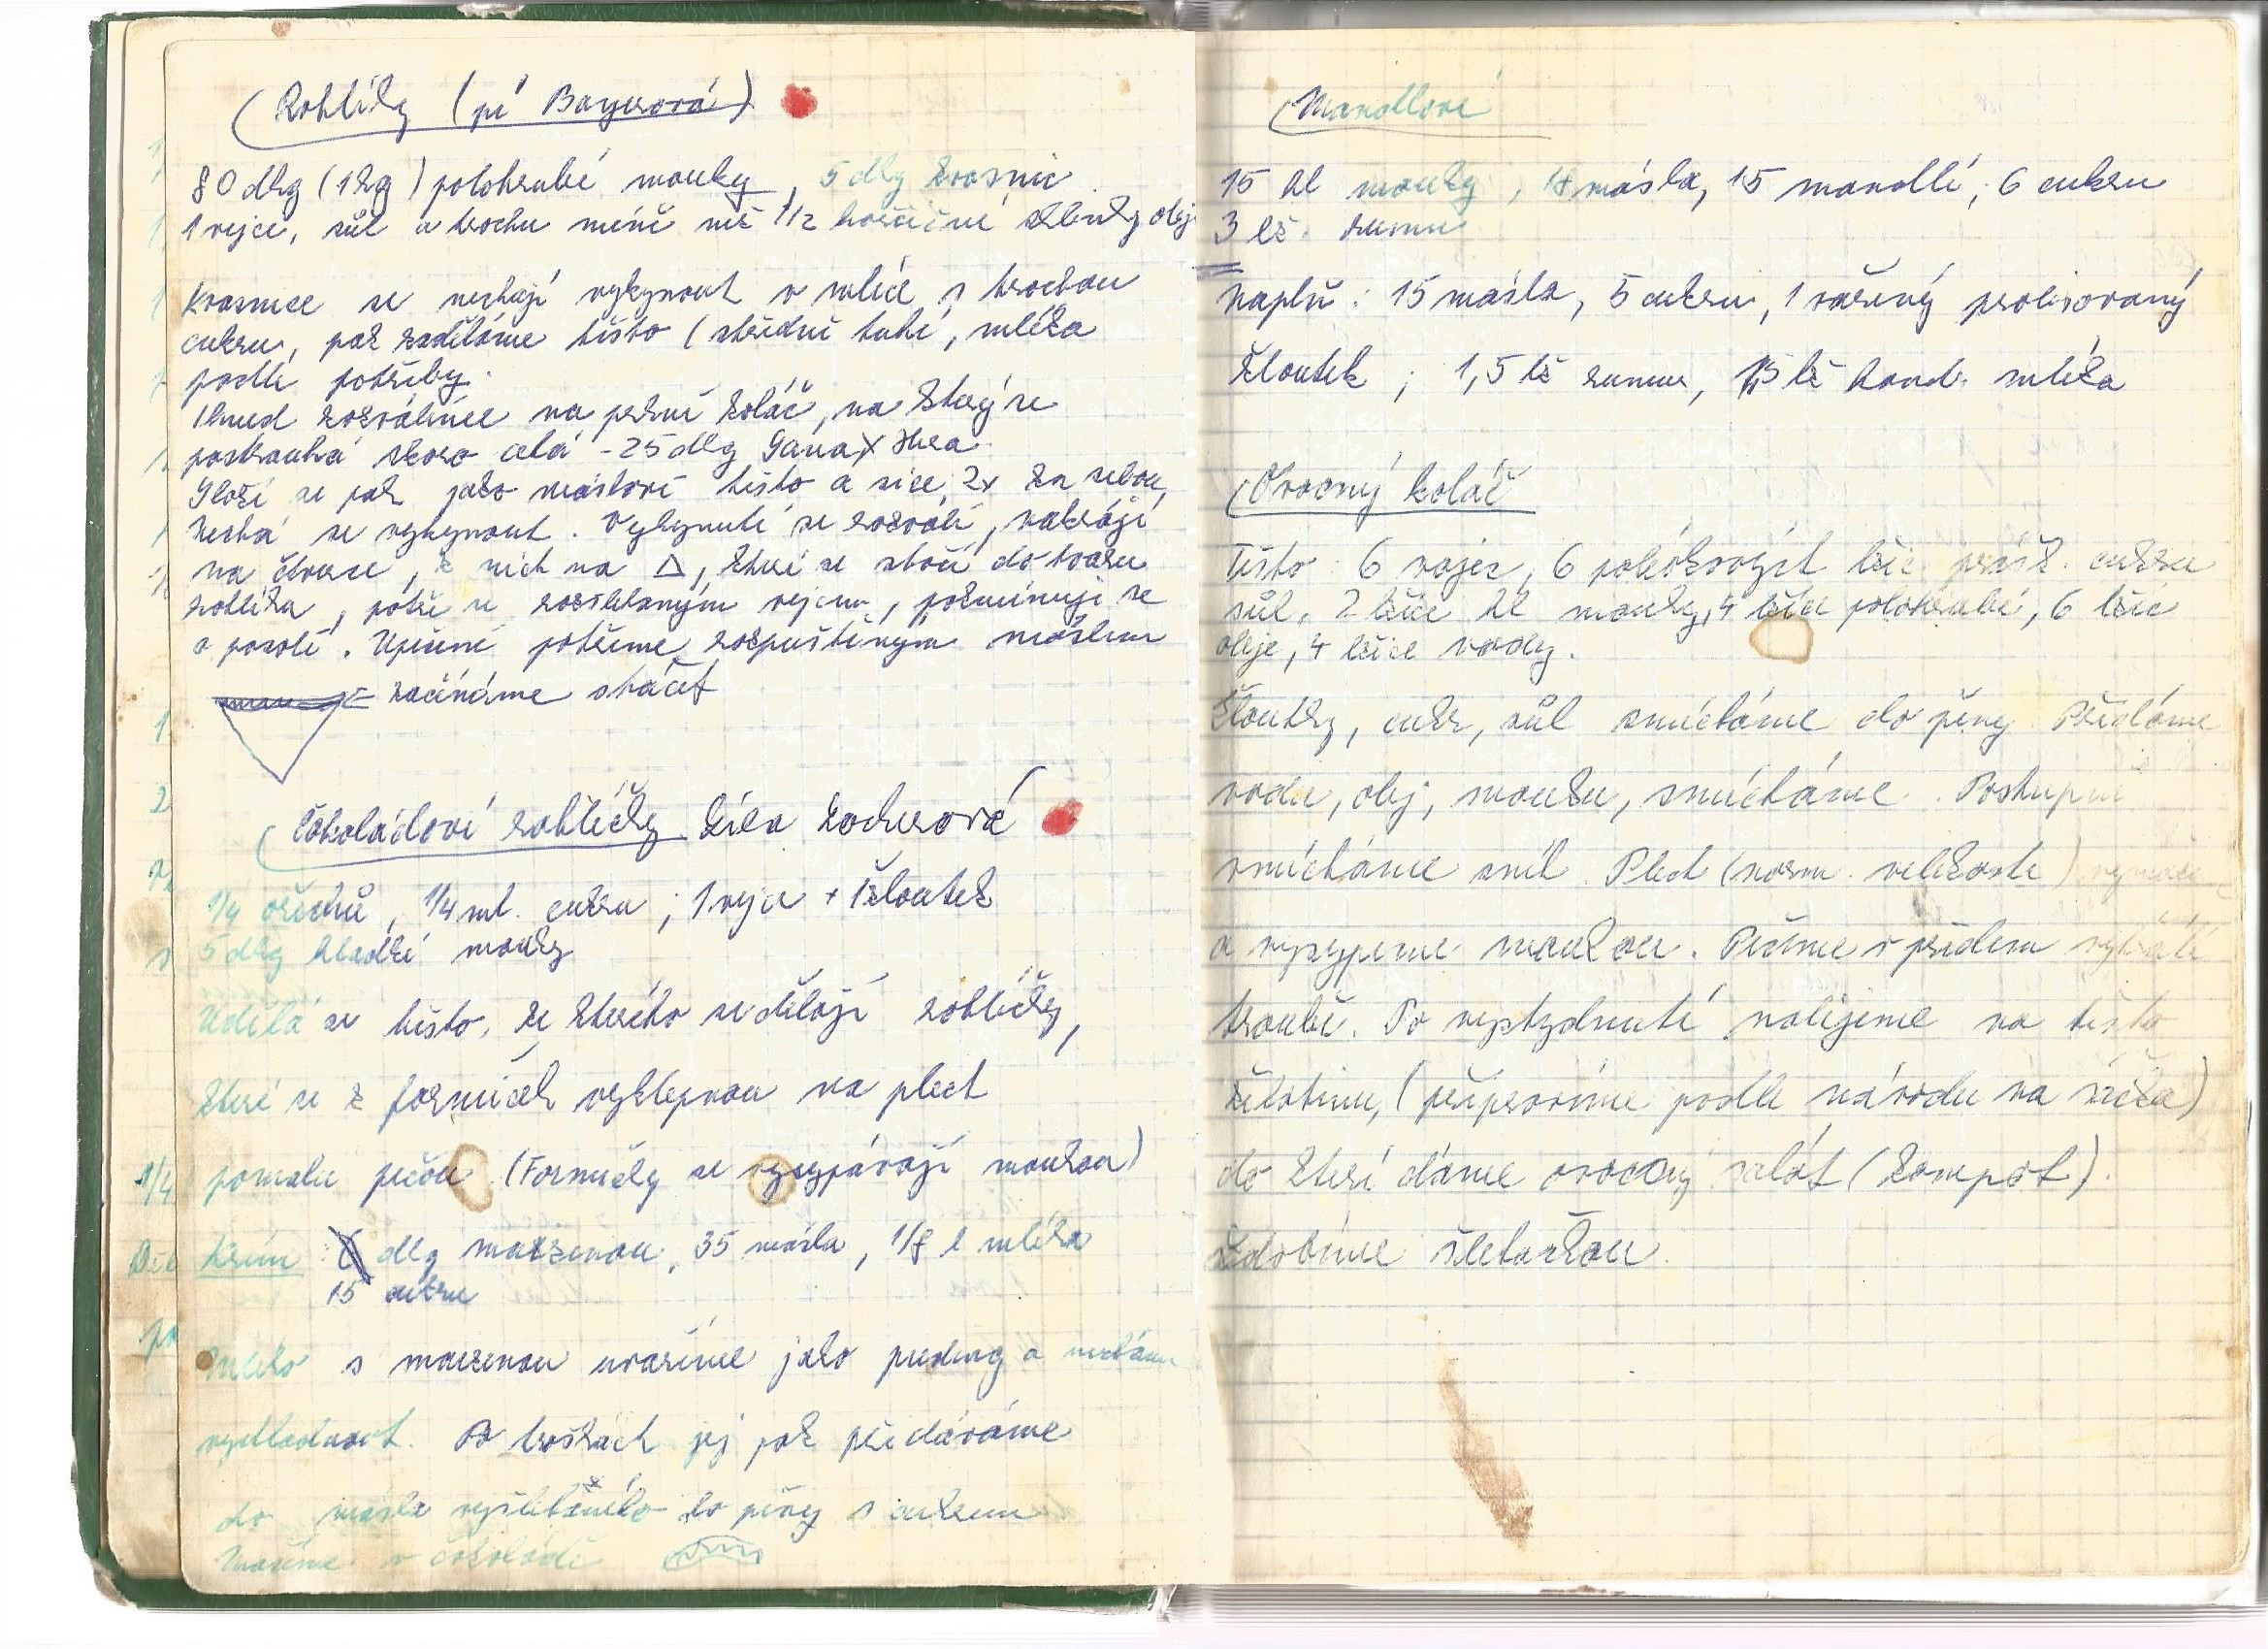 Rohlíky (pí Bayerová)
80 dkg (1kg) polohrubé mouky, 5 dkg kvasnic
1 vejce, sůl a trochu méně než 1/2 hořčičné sklenky olej
Kvasnice se nechají vykynout v mléce s trochou
cukru, pak zaděláme těsto (středně tuhé, mléka
podle potřeby.
Ihned rozválíme na plát koláč, na který se
postrouhá skoro celá - 25 dkg Hera
Složí se pak jako máslové těsto a sice 2x za sebou,
Nechá se vykynout. Vykynuté se rozválí, nakrájí
na čtverce, z nich na △, které se stočí do tvaru
rohlíka, potře se rozšlehaným vejcem, pokmínuje se
a posolí. Upečené potřeme rozpuštěným máslem
začínáme stáčet
Čokoládové rohlíčky
1/4 ořechů, 1/4 ml. cukru; 1 vejce + 1 žloutek
5 dkg hladké mouky
Udělá se těsto, ze kterého se dělají rohlíčky,
které se z formiček vyklepnou na plech
pomalu pečou (Formičky se vysypávají moukou)
Krém: dkg maizenou, 35 másla, 1/8 l mléka
15 cukru
Mléko s maizenou uvaříme jako puding a necháme
vychladnout. Po troškách jej pak přidáváme
do másla vyšlehaného do pěny s cukrem
Máčíme v čokoládě
Mandlové
15 hl mouky, másla, 15 mandlí, 6 cukru
3 lž. rumu
Náplň: 15 másla, 5 cukru, 1 vařený prolisovaný
žloutek; 1,5 lž rumu, lž kond. mléka
Ovocný koláč
Těsto: 6 vajec, 6 polévkových lžic prášk. cukru
sůl, 2 lžíce hl mouky, 4 lžíce polohrubé, 6 lžic
oleje, 4 lžíce vody.
Žloutky, cukr, sůl smícháme do pěny. Přidáme
vodu, olej, mouku, smícháme. Postupně
vmícháme sníh. Plech (norm. velikosti)
a vysypeme moukou. Pečeme v předem vyhřáté
troubě. Po vychladnutí nalijeme na těsto
želatinu, (připravíme podle návodu na sáčku)
do které dáme ovocný salát (kompot).
Zdobíme šlehačkou.